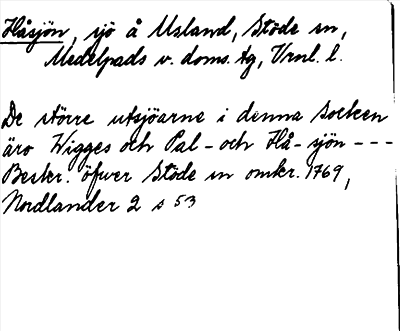 Håsjön, sjö å Utland, Stöde sn,
Medelpads v. doms. tg, Vrnl. l.
De större utsjöarne i denna Socken
äro Wigges och Pal- och Hå-sjön ---
Beskr. öfwer Stöde sn omkr. 1769,
Nordlander 2 s 53